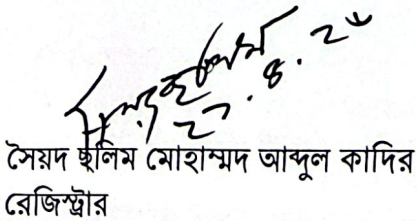 ২৭.৪.২৫
সৈয়দ ছলিম মোহাম্মদ আব্দুল কাদির
রেজিস্ট্রার